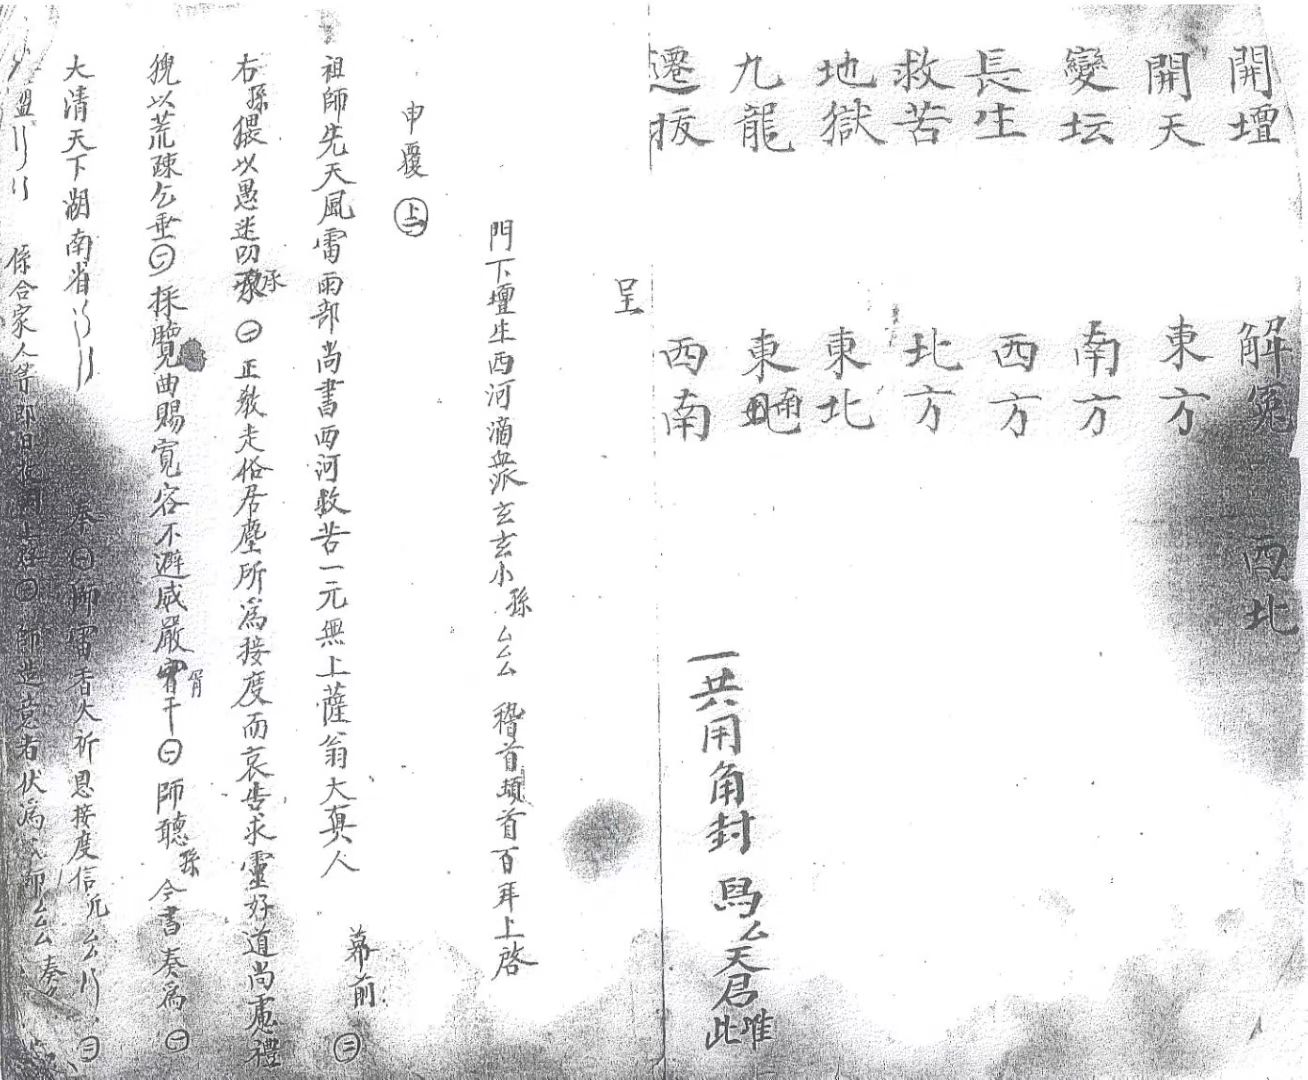 開壇
開天
變坛
長生
救苦
地獄
九龍
遷拔
解冤 西北
東方
南方
西方
北方
東北
東南
西南
一共用角封 為厶天君 此唯
呈
門下壇生西河滴血派玄玄小孫厶厶 稽首頓首百拜上啓
申覆㊤
祖師先天風雷雨部尚書西河救苦一元無上薩翁大真人 幕前㊂
右孫猥以愚迷叨承㊀正教走俗居塵所為接度而哀告求靈好道尚虧禮
猊以荒疎乞垂㊁採覽曲賜寬容不避威嚴冒干㊀師聽孫今書奏為㊀
大清天下湖南省 奉㊀師雷香火祈恩接度信氏厶 ㊂
盟 係合家人等即日 師造意者伏為 師厶厶奏